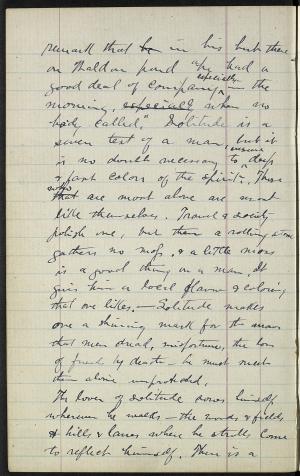 remark that he in his hut there
on Walden pond "he had a
good deal of company, especially in the
morning, especially when no
body called." Solitude is a
severe test of a man, but it
is no doubt necessary to insure deep
& fast colors of the spirit. Those
that who are most alone are most
like themselves. Travel & society
polish one, but then a rolling stone
gathers no moss, & a little moss
is a good thing on a man. It
gives him a local flavor & coloring
that one likes. — Solitude makes
one a shining mark for the arrows
that men dread, misfortune, the loss
of friends by death — he must meet
them alone unprotected.
The lover of solitude sows himself
wherever he walks — the woods & fields
& hills & lanes where he strolls come
to reflect himself. There is a